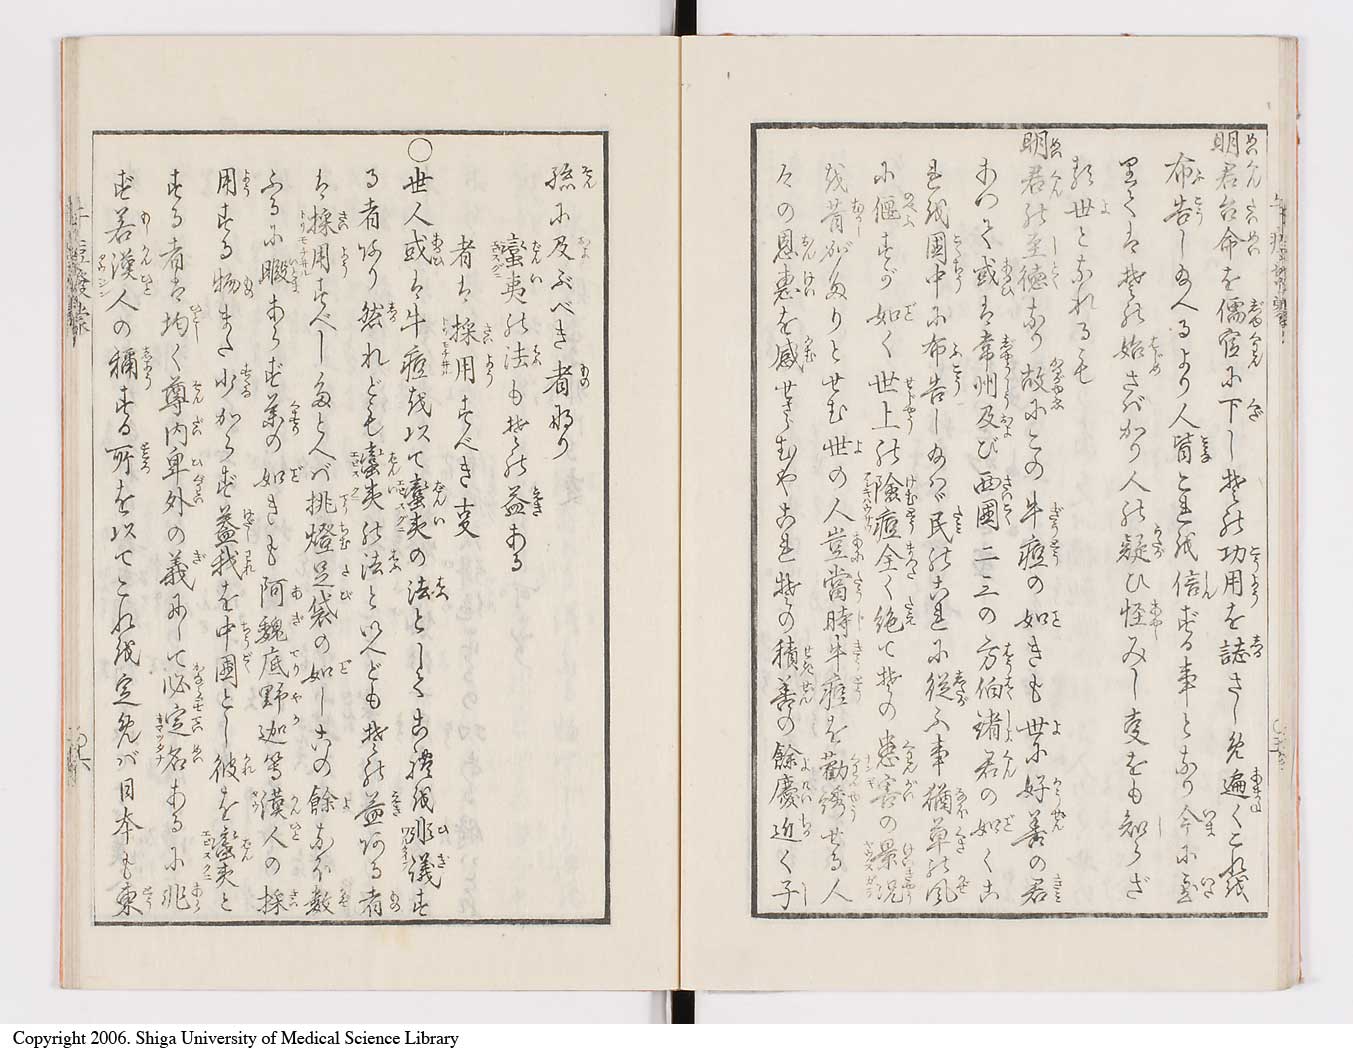 明君台命を儒官に下し其の功用を誌さしめ遍くこれを
布告し給へるより人皆これを信ずる事となり今に至
りては其の始さばかり人の疑ひ怪みし事をも知らざ
る世となれるも
明君の至徳なり故にこの牛痘の如きも世に好善の君
あつて或は常州及び西国二三の方伯諸君の如くこ
れを国中に布告し給はゞ民のこれに従ふ事猶草の風
に偃すが如く世上の険痘全く絶て其の患害の景況
を昔がたりとせむ世の人豈當時牛痘を勸誘せる人
々の恩恵を感せざらむやこれ其の積善の餘慶近く子
孫に及ぶべき者なり
蠻夷の法も其の益ある
者は採用すべき事
○世人或は牛痘を以て蠻夷の法としてこれを誹議す
る者あり然れども蠻夷の法といへども其の益ある者
は採用すべしたとへば挑燈足袋の如しその餘あげ数
ふるに暇あらず薬の如きも阿魏底野迦等漢人の採
用する物また少からず蓋我を中国とし彼を蠻夷と
する者は均く尊内卑外の義にして必定名あるに非
ず若漢人の稱する所を以てこれを定めば日本も東
Copyright 2006. Shiga University of Medical Science Library